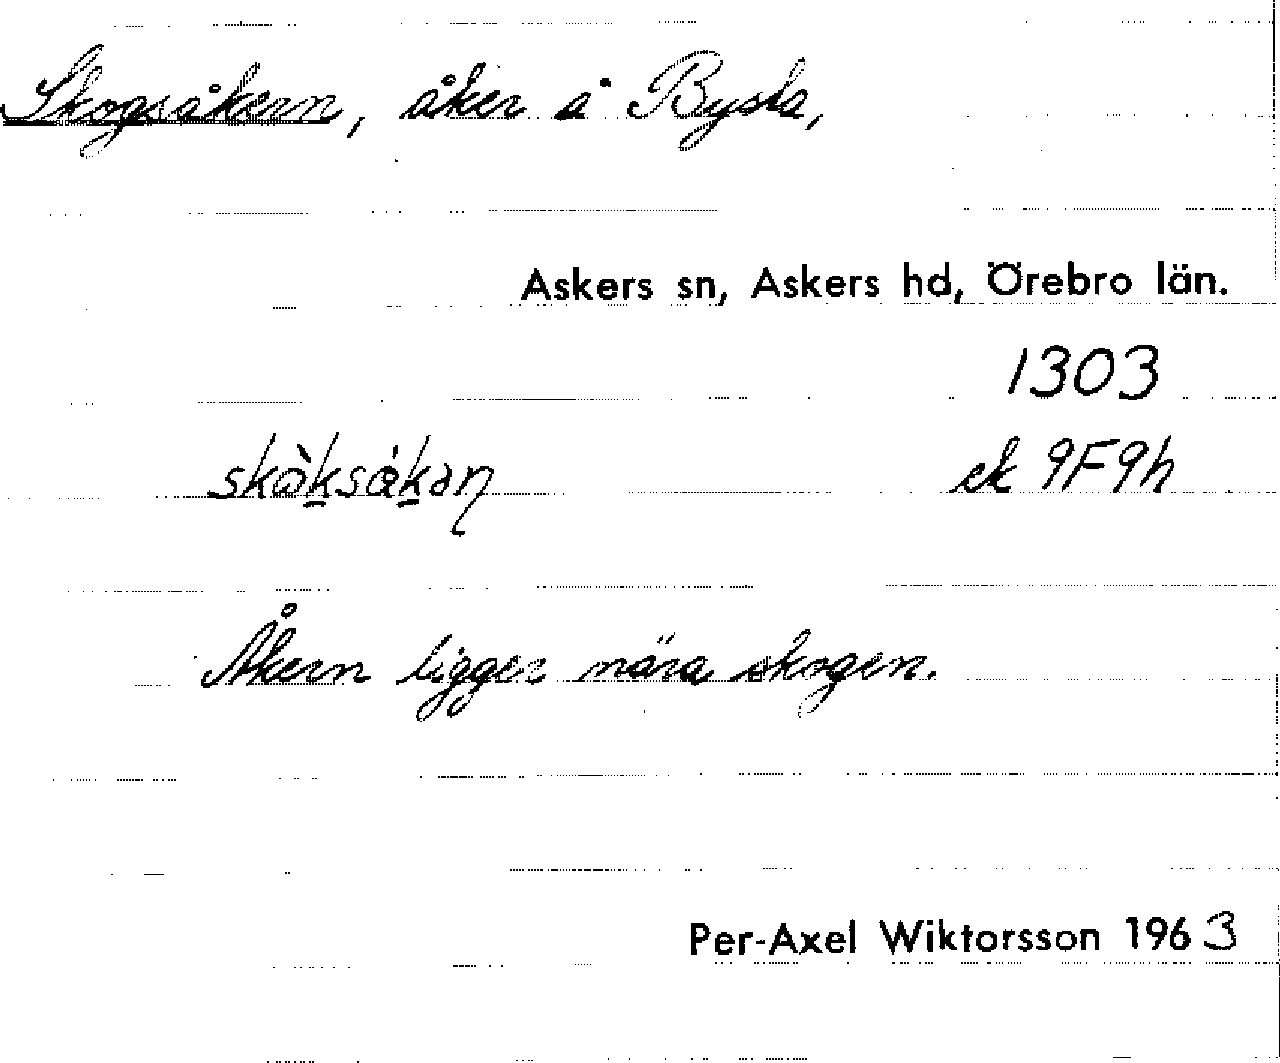 Skogsåkern, åker å Bysta,
Askers sn, Askers hd, Örebro län.
1303
skò̀ksåkan ek 9F9h
Åkern ligger nära skogen.
Per-Axel Wiktorsson 1963